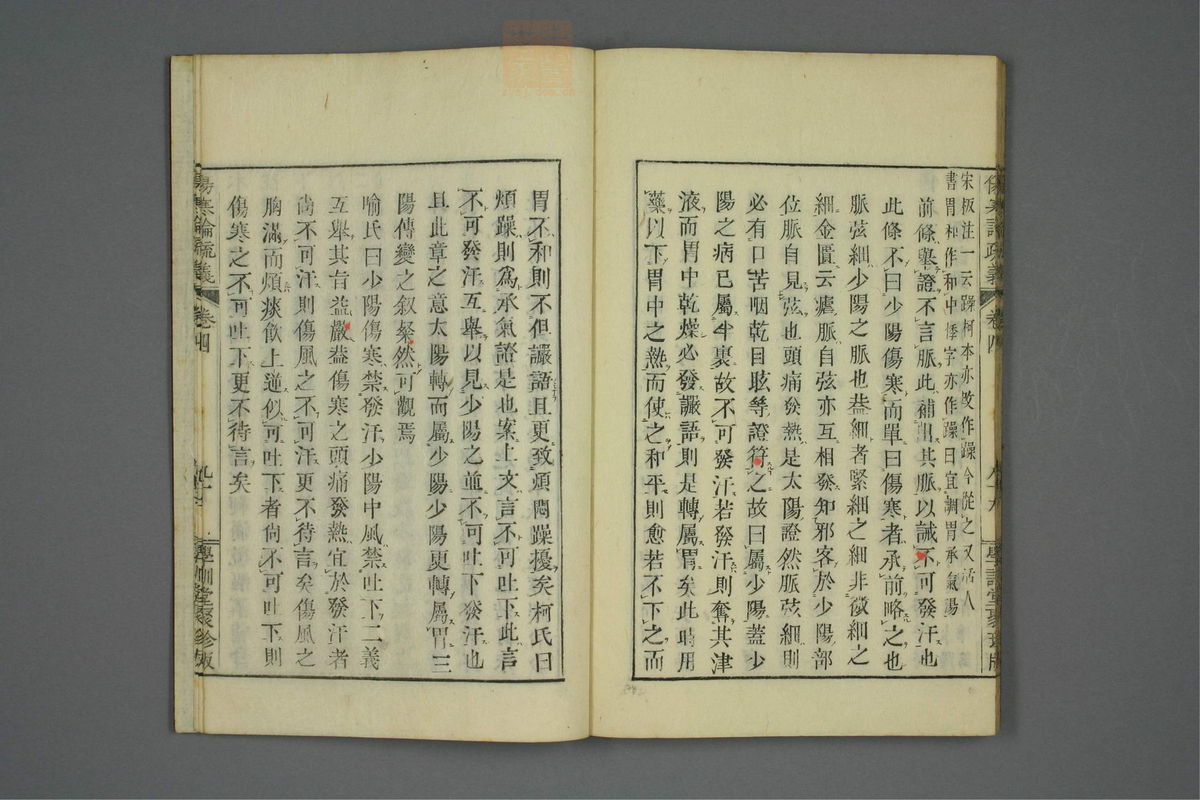 傷寒論疏義 卷四
學訓堂聚珍版
宋板注一云躁柯本亦改作躁今從之又活人
書胃和作和中悸字亦作躁曰宜調胃承氣湯
前條擧證不言脈此補出其脈以誡不可發汗也
此條不曰少陽傷寒而單曰傷寒者承前略之也
脈弦細少陽之脈也葢細者緊細之細非微細之
細金匱云瘧脈自弦亦互相發知邪客於少陽部
位脈自見弦也頭痛發熱是太陽證然脈弦細則
必有口苦咽乾目眩等證符之故曰屬少陽蓋少
陽之病已屬半裏故不可發汗若發汗則奪其津
液而胃中乾燥必發讝語則是轉屬胃矣此時用
藥以下胃中之熱而使之和平則愈若不下之而
胃不和則不但讝語且更致煩悶躁擾矣柯氏曰
煩躁則爲承氣證是也案上文言不可吐下此言
不可發汗互擧以見少陽之並不可吐下發汗也
且此章之意太陽轉而屬少陽少陽更轉屬胃三
陽傳變之叙粲然可觀焉
喻氏曰少陽傷寒禁發汗少陽中風禁吐下二義
互擧其旨益嚴葢傷寒之頭痛發熱宜於發汗者
尙不可汗則傷風之不可汗更不待言矣傷風之
胸滿而煩痰飮上逆似可吐下者尙不可吐下則
傷寒之不可吐下更不待言矣
傷寒論疏義 卷四
學訓堂聚珍版